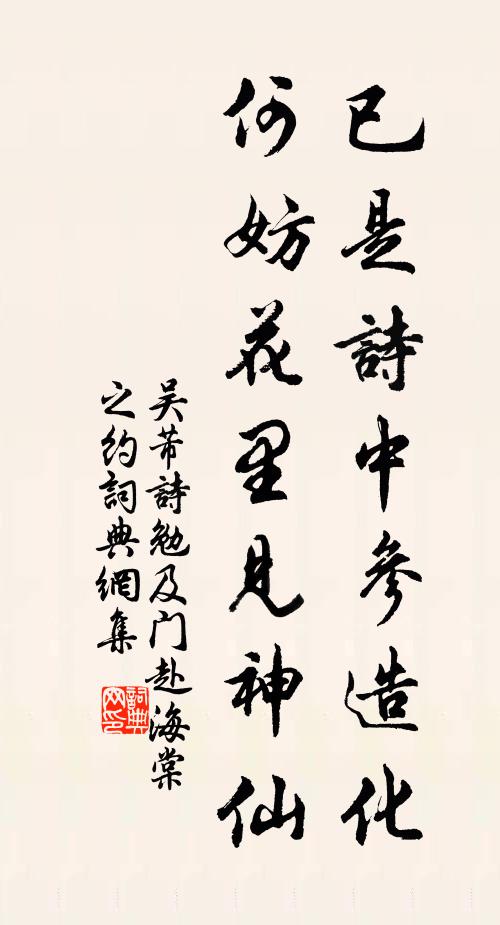 已是詩中參造化
何妨花里見神仙
吴芾詩勉及门赴海棠
之約詞典網集
詞典
网印